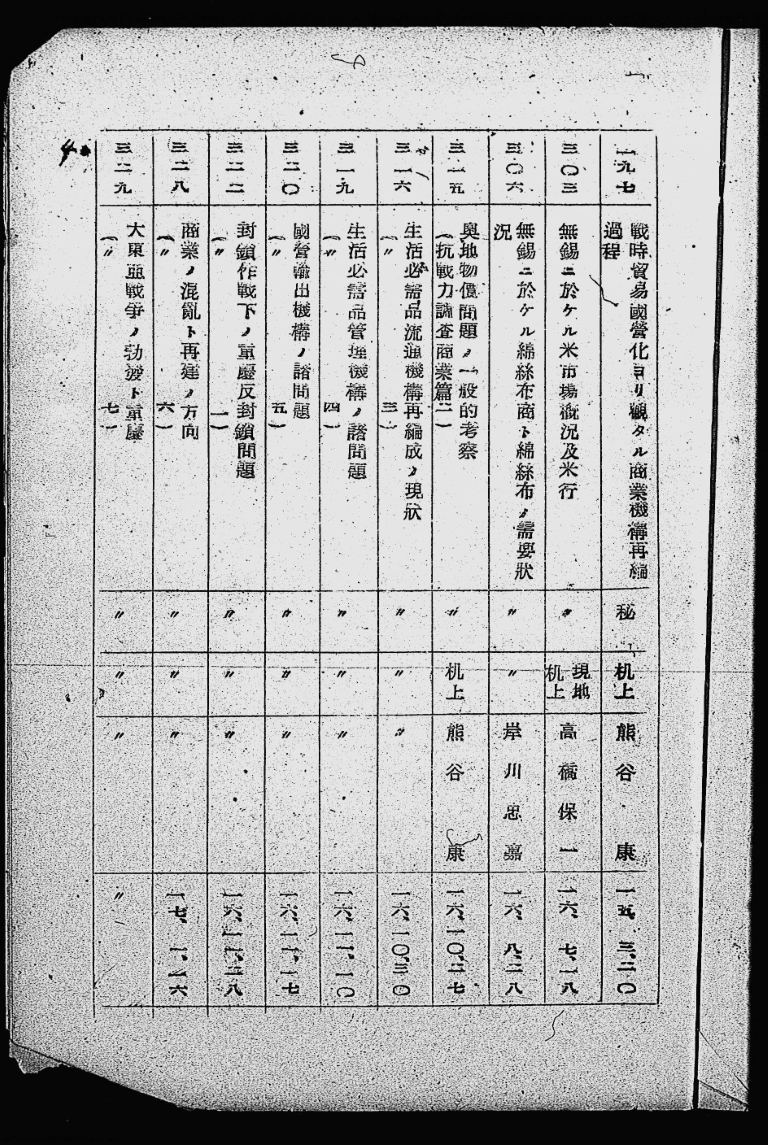 一九七
戰時貿易國營化ヨリ觀タル商業機構再編
過程
秘
机上
熊谷康
一五、三、二〇
三〇三
無錫ニ於ケル米市場槪況及米行
〃
現地
机上
高橋保一
一六、七、一八
三〇六
無錫ニ於ケル綿絲布商ト綿絲布ノ需要狀
況
〃
〃
岸川忠嘉
一六、八、二八
三一五
奧地物價問題ノ一般的考察
(抗戰力調査商業篇二)
〃
机上
熊谷康
一六、一〇、二七
三一六
生活必需品流通機構再編成ノ現狀
(〃三)
〃
〃
〃
一六、一〇、三〇
三一九
生活必需品管理機構ノ諸問題
(〃四)
〃
〃
〃
一六、一一、一〇
三二〇
國營輸出機構ノ諸問題
(〃五)
〃
〃
〃
一六、一一、一七
三二二
封鎖作戰下ノ重慶反封鎖問題
(〃一)
〃
〃
〃
一六、一一、二八
三二八
商業ノ混亂ト再建ノ方向
(〃六)
〃
〃
〃
一七、一、一六
三二九
大東亞戰爭ノ勃發ト重慶
(〃七)
〃
〃
〃
〃